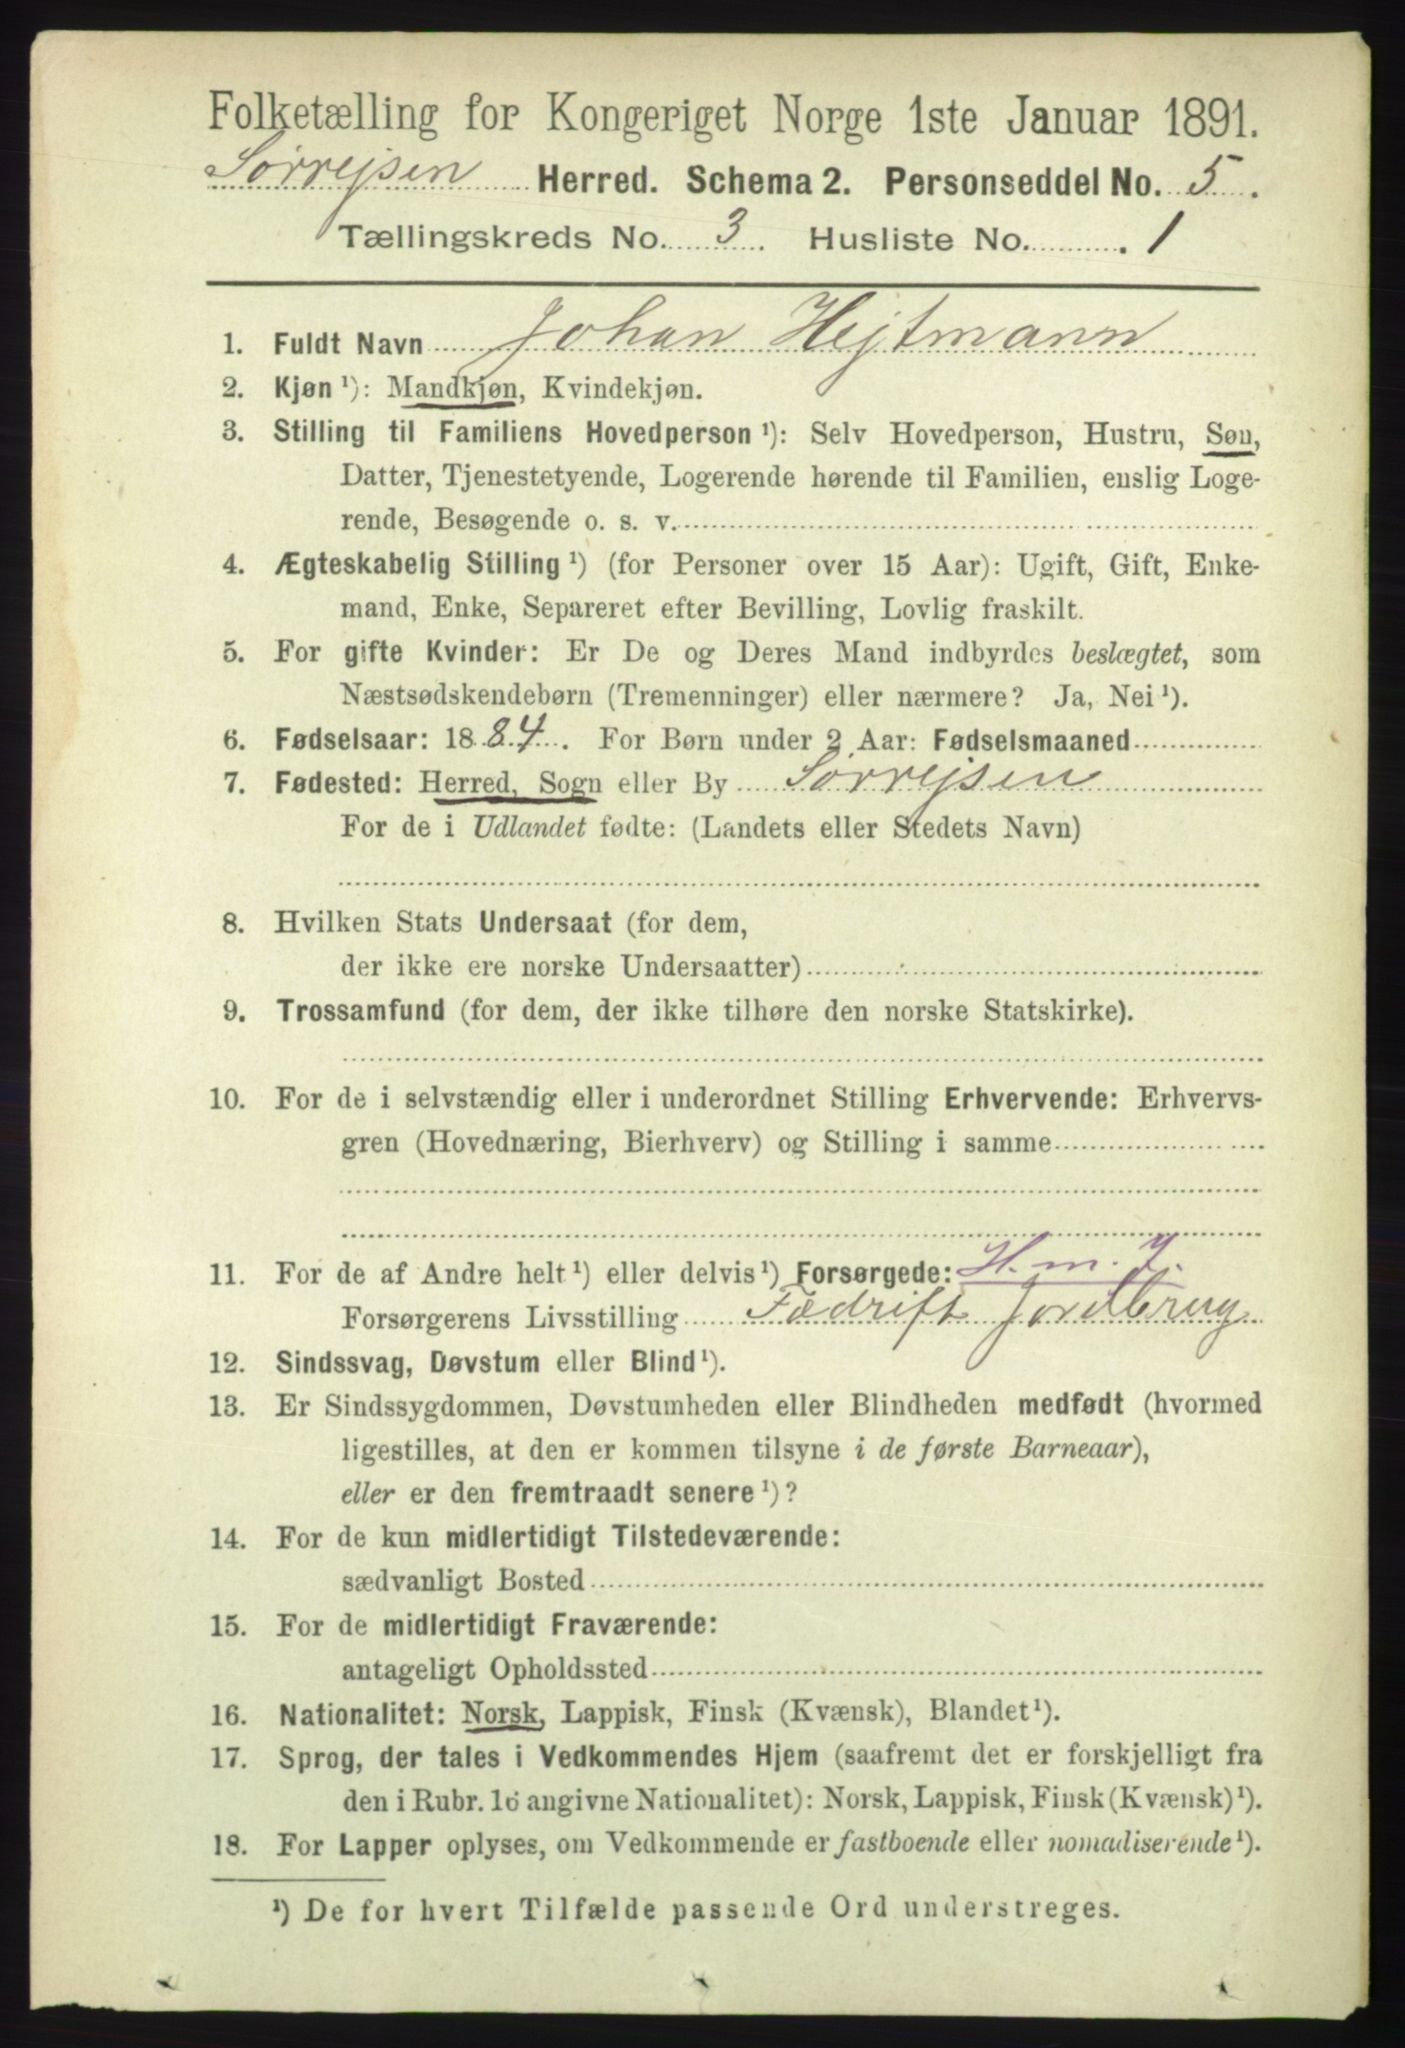 Folketælling for Kongeriget Norge 1ste Januar 1891.
Sørrejsen Herred. Schema 2. Personseddel No. 5.
Tællingskreds No. 3. Husliste No. 1
1. Fuldt Navn Johan Hejtmann
2. Kjøn ¹): Mandkjøn, Kvindekjøn.
3. Stilling til Familiens Hovedperson ¹): Selv Hovedperson, Hustru, Søn,
Datter, Tjenestetyende, Logerende hørende til Familien, enslig Loge-
rende, Besøgende o. s. v.
4. Ægteskabelig Stilling ¹) (for Personer over 15 Aar): Ugift, Gift, Enke-
mand, Enke, Separeret efter Bevilling, Lovlig fraskilt.
5. For gifte Kvinder: Er De og Deres Mand indbyrdes beslægtet, som
Næstsødskendebørn (Tremenninger) eller nærmere? Ja, Nei ¹).
6. Fødselsaar: 1884. For Børn under 2 Aar: Fødselsmaaned
7. Fødested: Herred, Sogn eller By Sørrejsen
For de i Udlandet fødte: (Landets eller Stedets Navn)
8. Hvilken Stats Undersaat (for dem,
der ikke ere norske Undersaatter)
9. Trossamfund (for dem, der ikke tilhøre den norske Statskirke).
10. For de i selvstændig eller i underordnet Stilling Erhvervende: Erhvervs-
gren (Hovednæring, Bierhverv) og Stilling i samme
11. For de af Andre helt ¹) eller delvis ¹) Forsørgede: H. m. J.
Forsørgerens Livsstilling Fædrift Jordbrug
12. Sindssvag, Døvstum eller Blind ¹).
13. Er Sindssygdommen, Døvstumheden eller Blindheden medfødt (hvormed
ligestilles, at den er kommen tilsyne i de første Barneaar),
eller er den fremtraadt senere ¹)?
14. For de kun midlertidigt Tilstedeværende:
sædvanligt Bosted
15. For de midlertidigt Fraværende:
antageligt Opholdssted
16. Nationalitet: Norsk, Lappisk, Finsk (Kvænsk), Blandet ¹).
17. Sprog, der tales i Vedkommendes Hjem (saafremt det er forskjelligt fra
den i Rubr. 16 angivne Nationalitet): Norsk, Lappisk, Finsk (Kvænsk) ¹).
18. For Lapper oplyses, om Vedkommende er fastboende eller nomadiserende ¹).
¹) De for hvert Tilfælde passende Ord understreges.